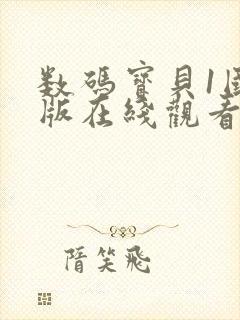 数碼寶貝1國
版在綫觀看
隋笑飛